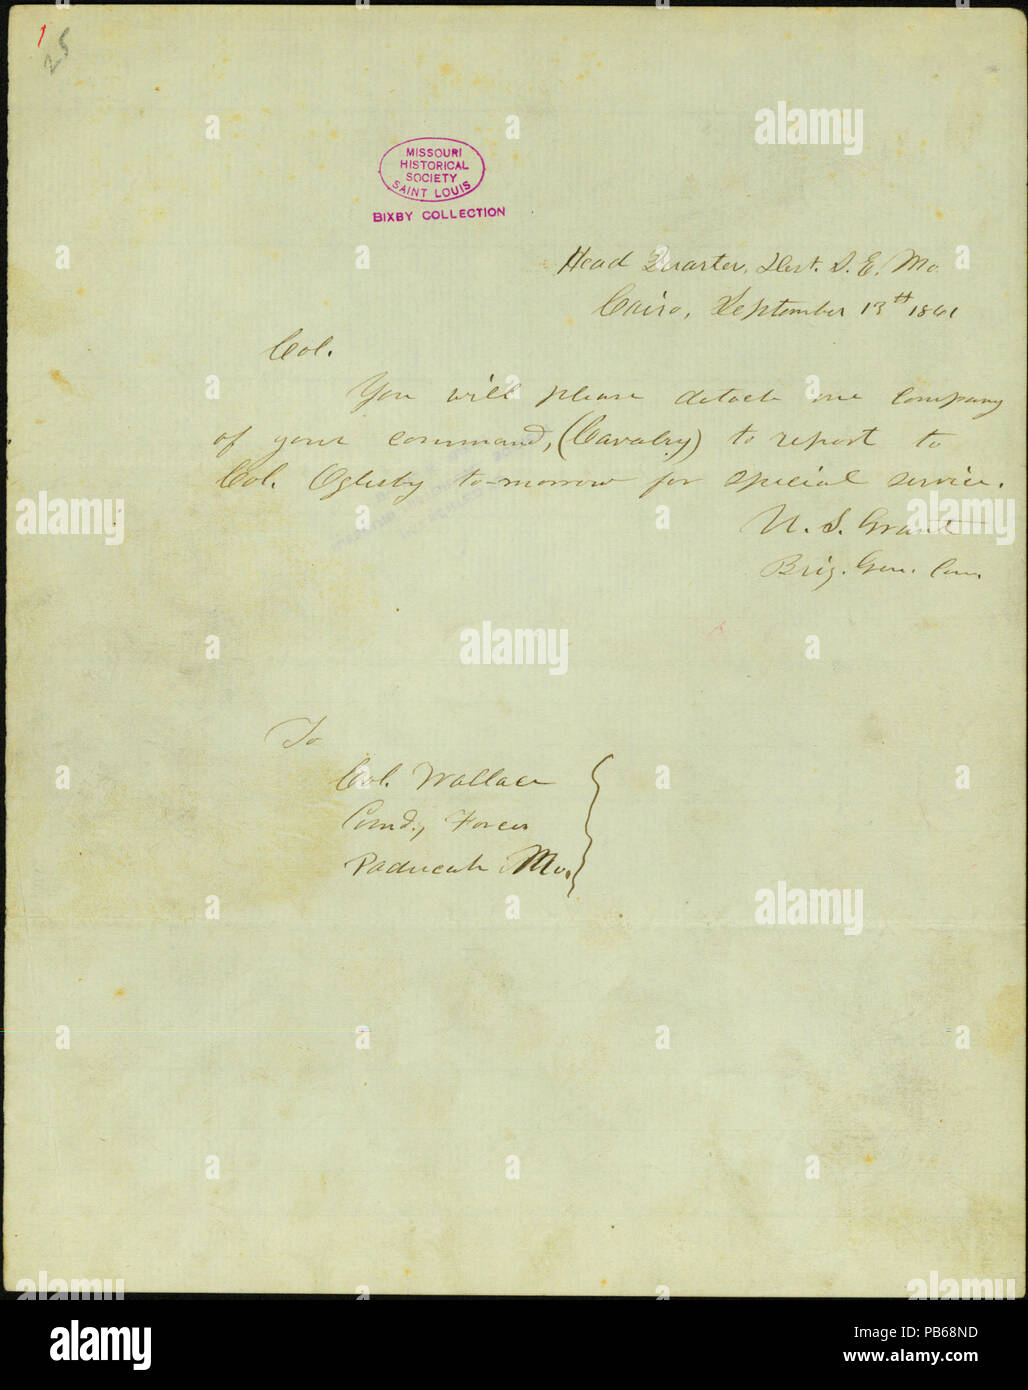 1
25
alamy
MISSOURI
HISTORICAL
SOCIETY
SAINT LOUIS
BIXBY COLLECTION
Head Quarters, Dist. S. E. Mo.
Cairo, September 13th 1861
Col.
You will please detach one company
of your command, (Cavalry) to report to
Col. Oglesby to-morrow for special service.
U. S. Grant
Brig. Gen. Com.
alamy
To
Col. Wallace
Comd.g Forces
Paducah Mo.
alamy
alamy
Image ID: PB68ND
www.alamy.com